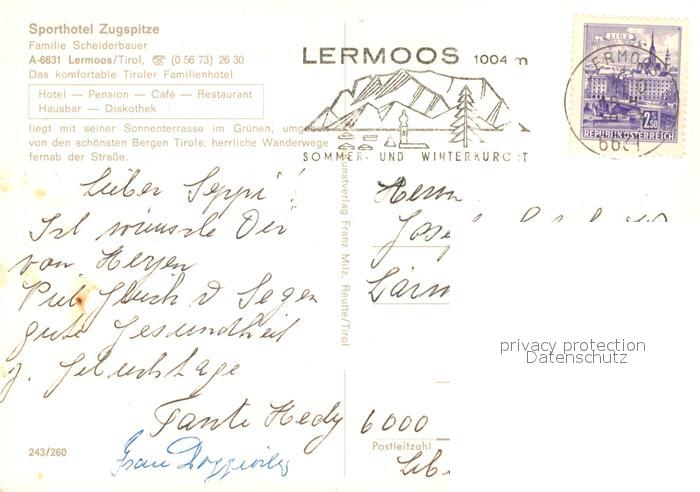 Sporthotel Zugspitze
Familie Scheiderbauer
A-6631 Lermoos/Tirol, ☎ (0 56 73) 26 30
Das komfortable Tiroler Familienhotel
Hotel — Pension — Café — Restaurant
Hausbar — Diskothek
liegt mit seiner Sonnenterrasse im Grünen, umgeben
von den schönsten Bergen Tirols; herrliche Wanderwege
fernab der Straße.
LERMOOS 1004 m
SOMMER- UND WINTERKURORT
LINZ
2,50
REPUBLIK ÖSTERREICH
LERMOOS
6631
Lieber Seppi!
Ich wünsche Dir
von Herzen
Viel Glück u Segen
gute Gesundheit
z. Geburtstage
Tante Hedy
Frau
Kunstverlag Franz Milz, Reutte/Tirol
Herrn
Josef
6000
Postleitzahl
243/260
privacy protection
Datenschutz